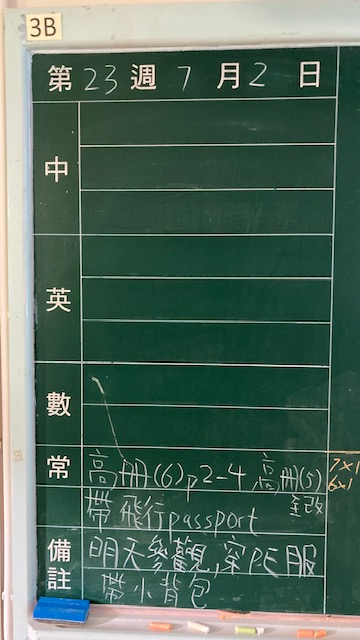 3B
第 23 週 7 月 2 日
中
英
數
常 高册(6)p2-4 高册(5)
帶飛行passport 全改
7x1
6x1
備註
明天參觀,穿PE服
帶小背包